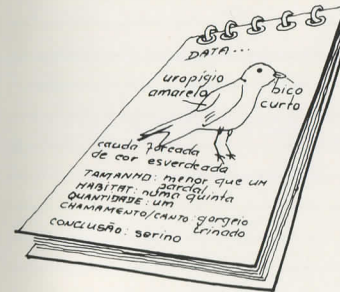 DATA...
uropígio
amarelo
bico
curto
cauda forcada
de cor esverdeada
TAMANHO: menor que um
pardal
HABITAT: numa quinta
QUANTIDADE: um
CHAMAMENTO/CANTO: gorgeio
trinado
CONCLUSÃO: serino